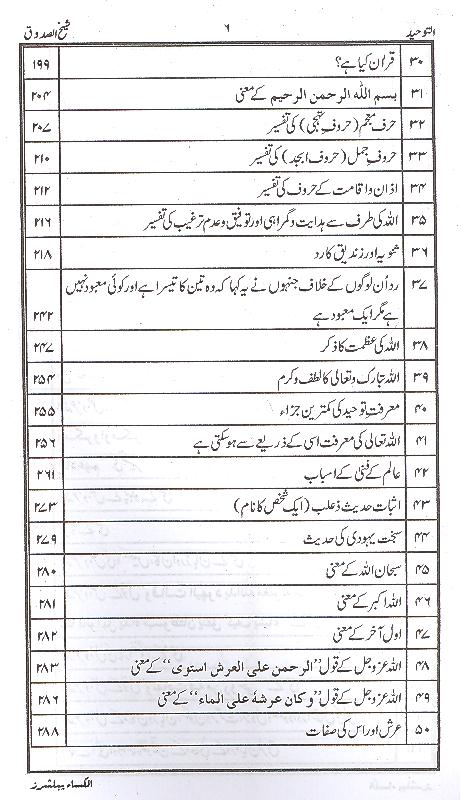 التوحید ۶ شیخ الصدوقؒ
۳۰ قرآن کیا ہے؟ ۱۹۹
۳۱ بسم اللہ الرحمن الرحیم کے معنی ۲۰۴
۳۲ حرف معجم (حروف تہجی) کی تفسیر ۲۰۷
۳۳ حروف جمل (حروف ابجد) کی تفسیر ۲۱۰
۳۴ اذان و اقامت کے حروف کی تفسیر ۲۱۲
۳۵ اللہ کی طرف سے ہدایت و گمراہی اور توفیق و عدم ترغیب کی تفسیر ۲۱۶
۳۶ ثنویہ اور زندیق کا رد ۲۱۸
۳۷ رد اُن لوگوں کے خلاف جنہوں نے یہ کہا کہ وہ تین کا تیسرا ہے اور کوئی معبود نہیں
ہے مگر ایک معبود ہے ۲۴۲
۳۸ اللہ کی عظمت کا ذکر ۲۴۷
۳۹ اللہ تبارک و تعالیٰ کا لطف و کرم ۲۵۴
۴۰ معرفتِ توحید کی کمترین جزاء ۲۵۵
۴۱ اللہ تعالیٰ کی معرفت اسی کے ذریعے سے ہو سکتی ہے ۲۵۶
۴۲ عالم کے فنی کے اسباب ۲۶۱
۴۳ اثبات حدیث ذعلب (ایک شخص کا نام) ۲۷۳
۴۴ سبخت یہودی کی حدیث ۲۷۹
۴۵ سبحان اللہ کے معنی ۲۸۰
۴۶ اللہ اکبر کے معنی ۲۸۱
۴۷ اول آخر کے معنی ۲۸۲
۴۸ اللہ عزوجل کے قول ”الرحمن علی العرش استوی“ کے معنی ۲۸۳
۴۹ اللہ عزوجل کے قول ”وکان عرشہٗ علی الماء“ کے معنی ۲۸۶
۵۰ عرش اور اس کی صفات ۲۸۸
الکساء پبلشرز